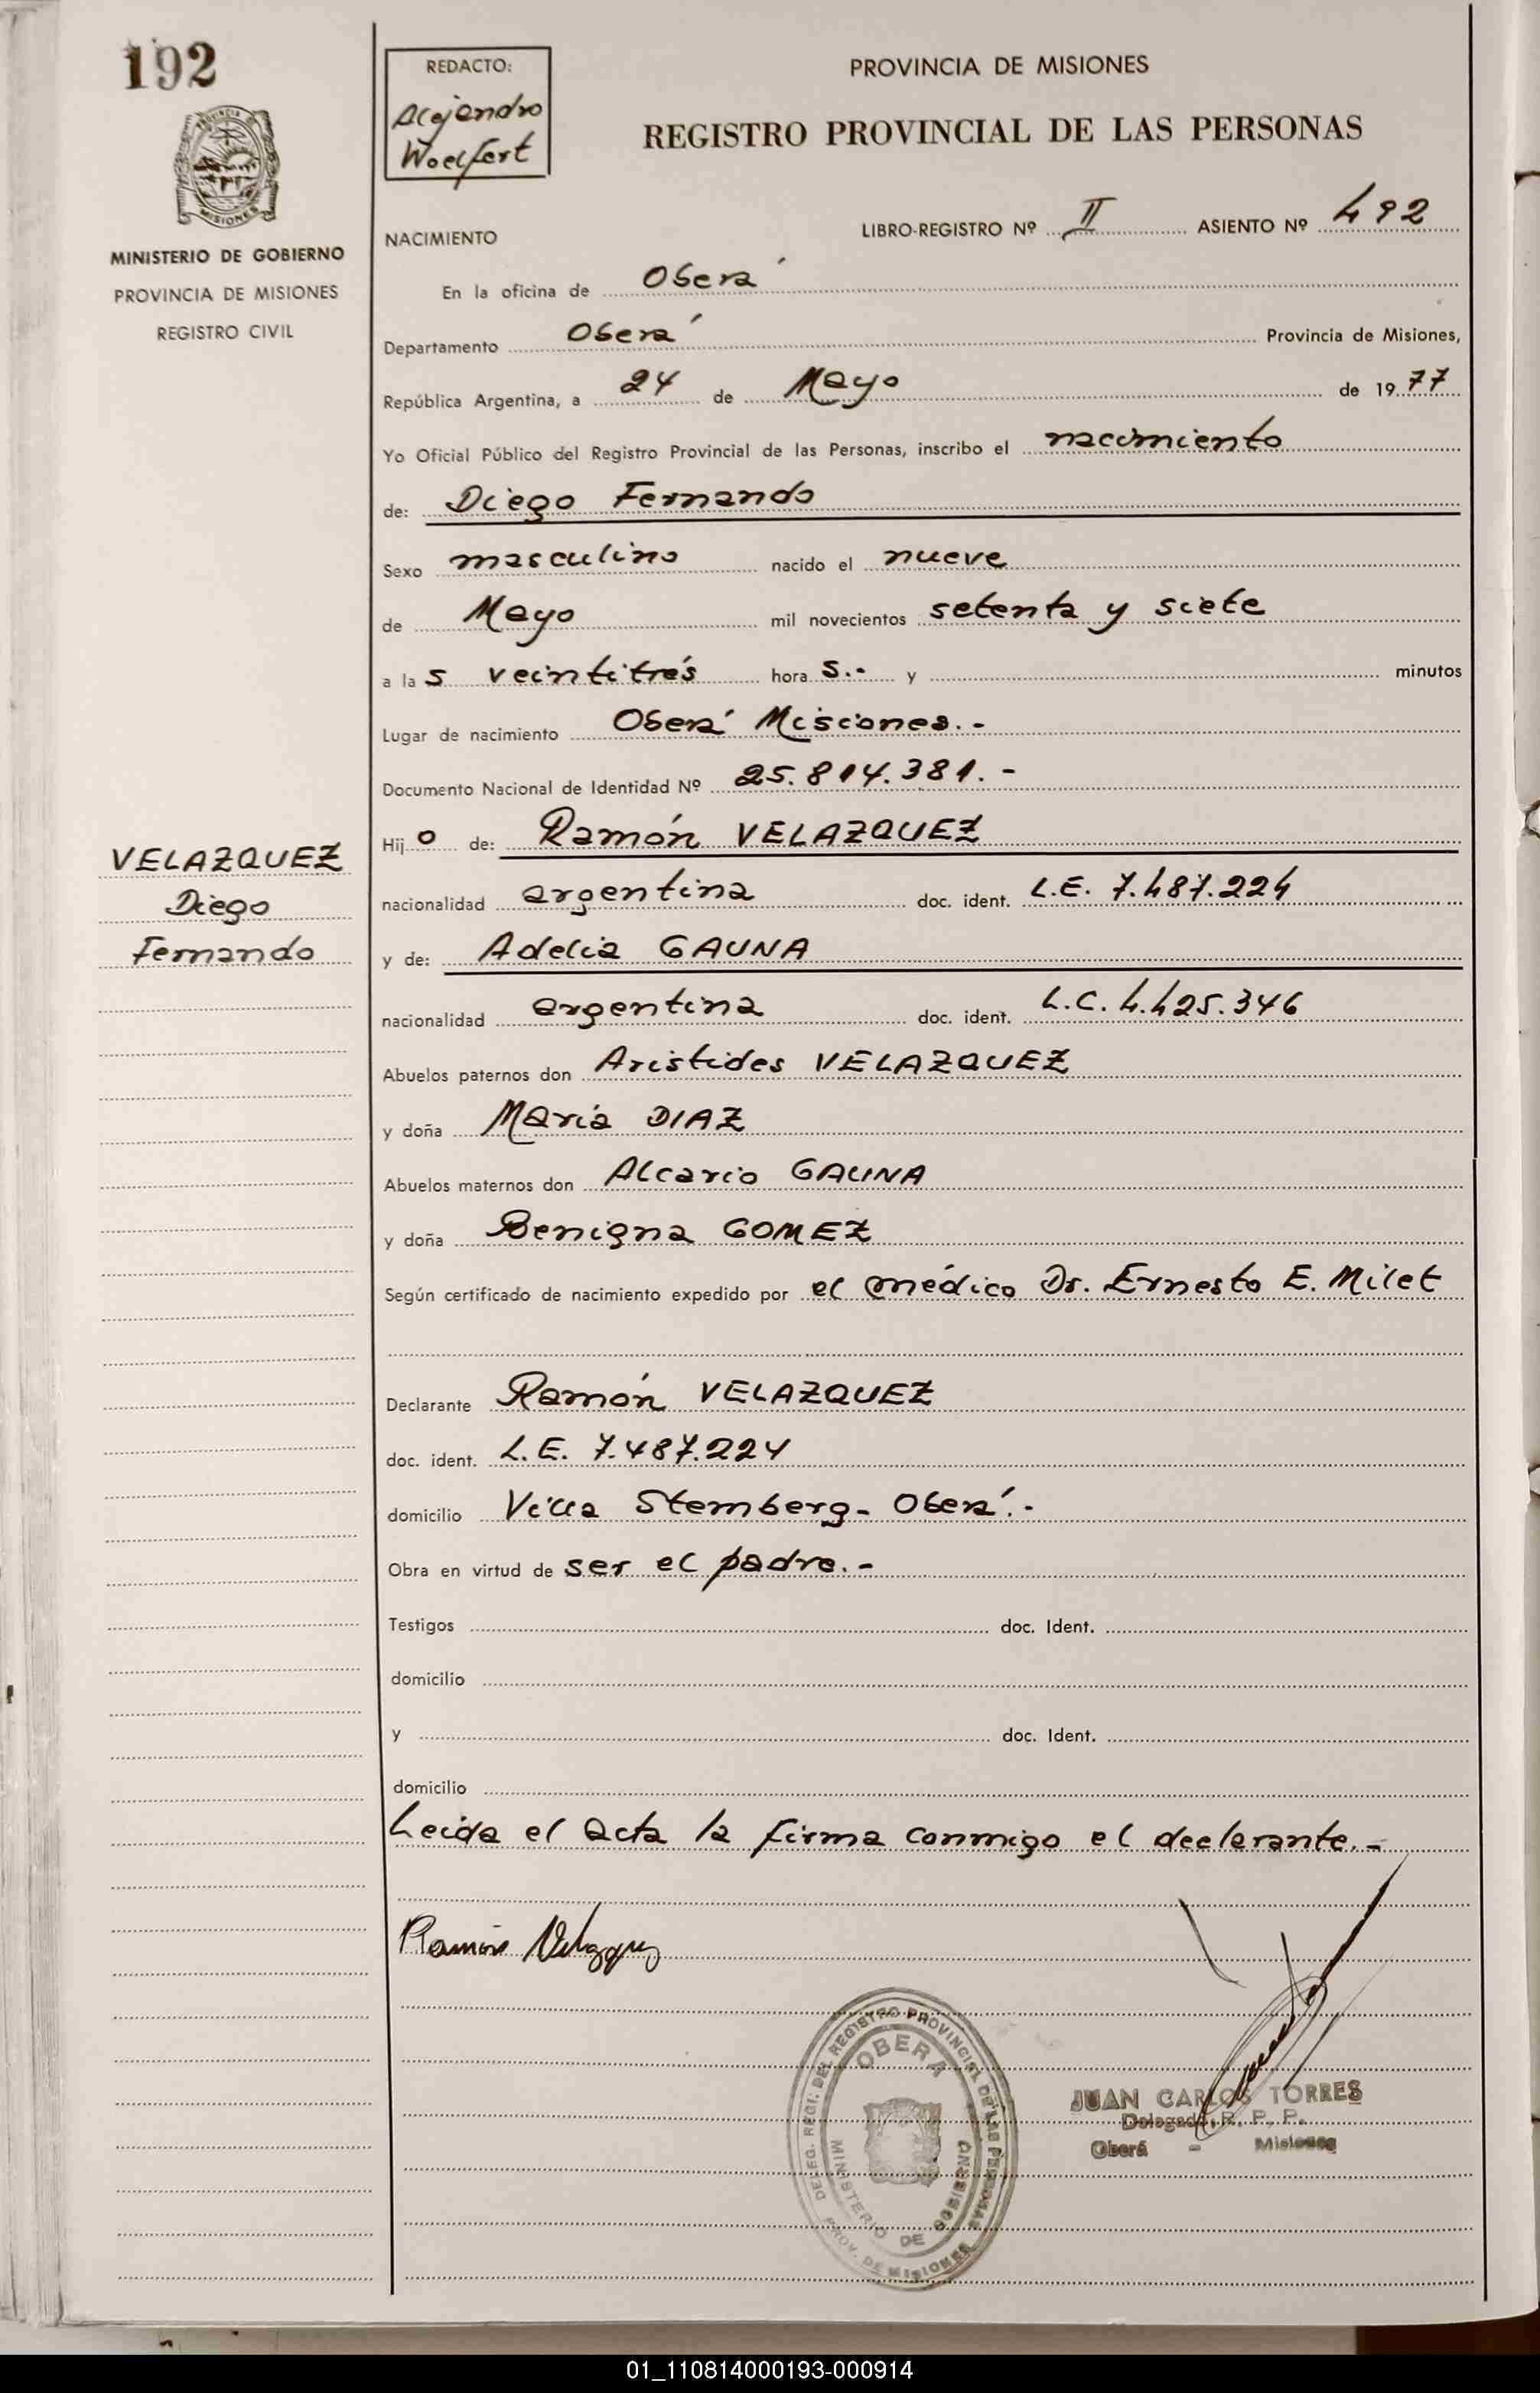 192
REDACTO:
Alejandro
Woelfert
PROVINCIA DE MISIONES
REGISTRO PROVINCIAL DE LAS PERSONAS
PROVINCIA DE
MISIONES
MINISTERIO DE GOBIERNO
PROVINCIA DE MISIONES
REGISTRO CIVIL
NACIMIENTO
LIBRO-REGISTRO Nº II ASIENTO Nº 492
En la oficina de Oberá
Departamento Oberá Provincia de Misiones,
República Argentina, a 24 de Mayo de 1977
Yo Oficial Público del Registro Provincial de las Personas, inscribo el nacimiento
de: Diego Fernando
Sexo masculino nacido el nueve
de Mayo mil novecientos setenta y siete
a las veintitrés horas.- y minutos
Lugar de nacimiento Oberá Misiones.-
Documento Nacional de Identidad Nº 25.814.381.-
Hijo de: Ramón VELAZQUEZ
VELAZQUEZ
Diego
Fernando
nacionalidad argentina doc. ident. L.E. 7.487.224
y de: Adelia GAUNA
nacionalidad argentina doc. ident. L.C. 4.425.346
Abuelos paternos don Aristides VELAZQUEZ
y doña María DIAZ
Abuelos maternos don Alcario GAUNA
y doña Benigna GOMEZ
Según certificado de nacimiento expedido por el médico Dr. Ernesto E. Milet
Declarante Ramón VELAZQUEZ
doc. ident. L.E. 7.487.224
domicilio Villa Stemberg- Oberá.-
Obra en virtud de ser el padre.-
Testigos doc. Ident.
domicilio
y doc. Ident.
domicilio
Leida el acta la firma conmigo el declarante.-
Ramón Velazquez
DELEG. REGI. DEL REGISTRO PROVINCIAL DE LAS PERSONAS
OBERA
MINISTERIO DE GOBIERNO
PROV. DE MISIONES
JUAN CARLOS TORRES
Delegado, R. P. P.
Oberá - Misiones
01_110814000193-000914